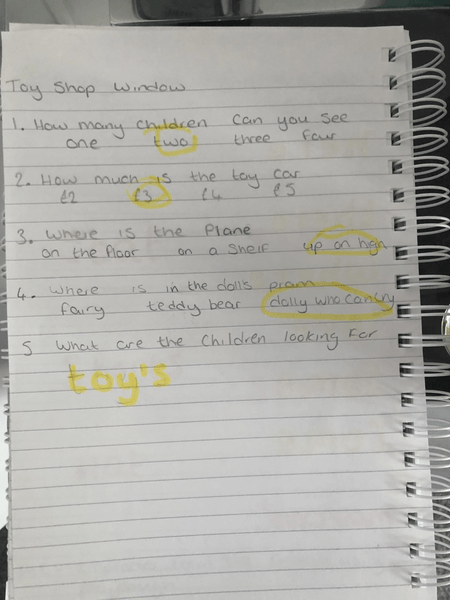 Toy Shop Window
1. How many children can you see
one two three four
2. How much is the toy car
£2 £3 £4 £5
3. Where is the Plane
on the floor on a shelf up on high
4. Where is in the dolls pram
fairy teddy bear dolly who can cry
5 What are the children looking for
toy's